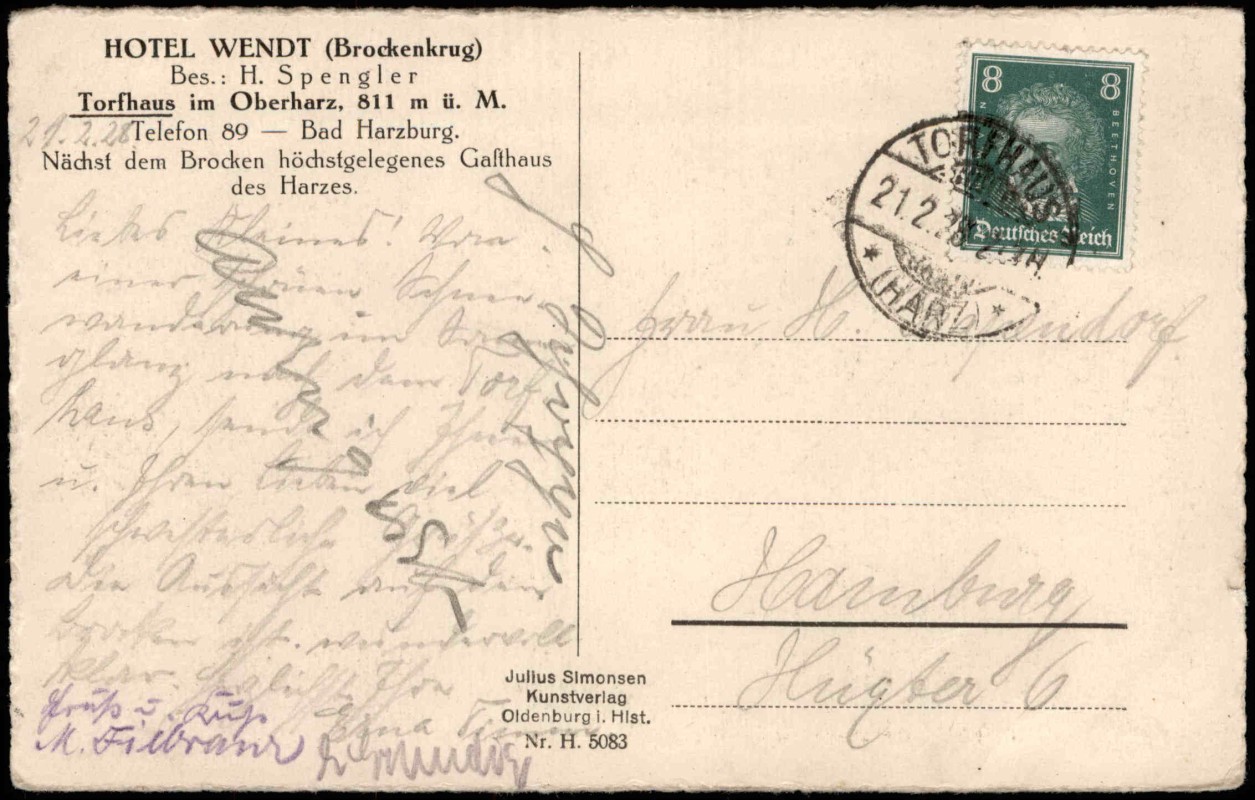 HOTEL WENDT (Brockenkrug)
Bes.: H. Spengler
Torfhaus im Oberharz, 811 m ü. M.
21.2.28
Telefon 89 — Bad Harzburg.
Nächst dem Brocken höchstgelegenes Gasthaus
des Harzes.
Liebes Kleines! Von
einer schönen Schnee
wanderung im
glanz nach dem Torf
haus, sende ich Ihnen
u. Ihren Lieben viel
schwisterliche Grüße.
Die Aussicht auf den
Brocken ist wundervoll
klar. Ihre
Erna
Gruß u. Kuß
M. Filbrandt
8 8
BEETHOVEN
Deutsches Reich
TORFHAUS
21.2.28
* (HARZ) *
Frau H.
Hamburg
Hügter 6
Julius Simonsen
Kunstverlag
Oldenburg i. Hlst.
Nr. H. 5083